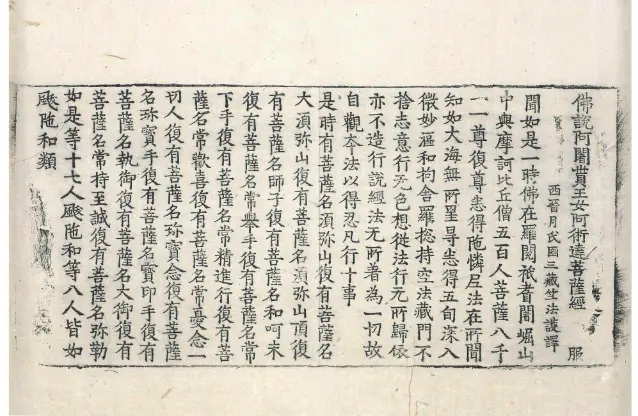 佛說阿闍貰王女阿術達菩薩經 服
西晉月氏國三藏竺法護譯
聞如是一時佛在羅閱祇耆闍崛山
中與摩訶比丘僧五百人菩薩八千
一一尊復尊悉得陁憐尼法在所聞
知如大海無所罣㝵悉得五旬深入
微妙漚和拘舍羅惣持空法藏門不
捨志意行无色想從法行无所歸依
亦不造行說經法无所著為一切故
自觀本法以得忍凡行十事
是時有菩薩名須弥山復有菩薩名
大須弥山復有菩薩名須弥山頂復
有菩薩名師子復有菩薩名和呵末
復有菩薩名常舉手復有菩薩名常
下手復有菩薩名常精進行復有菩
薩名常歡喜復有菩薩名常憂念一
切人復有菩薩名珎寶念復有菩薩
名珎寶手復有菩薩名寶印手復有
菩薩名執御復有菩薩名大御復有
菩薩名常持至誠復有菩薩名弥勒
如是等十七人颰陁和等八人皆如
颰陁和類